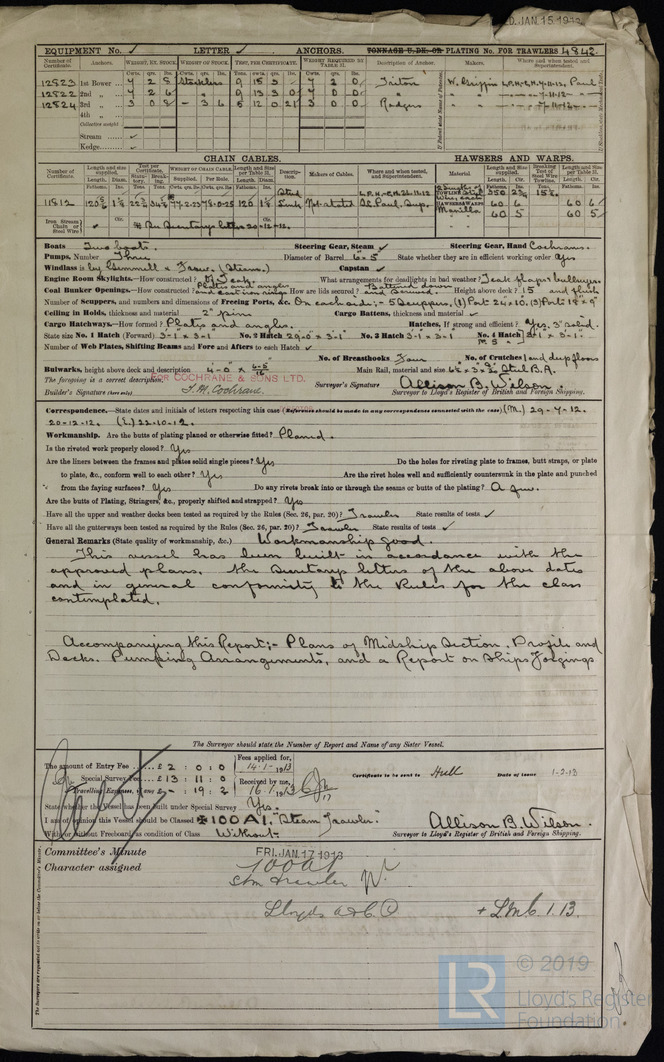 WED. JAN. 15 1913
EQUIPMENT No. ✓ LETTER ✓ ANCHORS. TONNAGE U.DK. OR PLATING No. FOR TRAWLERS 4842.
Number of Certificate. Anchors. WEIGHT, EX. STOCK. WEIGHT OF STOCK. TEST, PER CERTIFICATE. WEIGHT REQUIRED BY TABLE 31. Description of Anchor. Makers. Where and when tested and Superintendent.
Cwts. qrs. lbs. Cwts. qrs. lbs. Tons. cwts. qrs. lbs. Cwts. qrs. lbs.
12523 1st Bower 7 2 8 Stockless 9 15 3 7 2 0 Triton W. Griffin L.P.H.-C.H. 7-11-12. Paul
12522 2nd „ 7 2 6 „ 9 13 3 0 7 0 0 „ „ „ 7-11-12 „
12524 3rd „ 3 0 8 - 3 4 5 12 0 21 3 0 0 Rodgers „ „ 7-11-12 „
4th „
Collective weight
Stream ✓
Kedge ✓
CHAIN CABLES. HAWSERS AND WARPS.
Number of Certificate. Length and size supplied. Test per Certificate. WEIGHT OF CHAIN CABLE. Length and size per Table 31. Description. Makers of Cables. Where and when tested, and Superintendent. Material. Length and size supplied. Breaking Test of Steel Wire Towline. Length and size per Table 31.
Fathoms. Diam. Supplied. Per Rule. Length. Diam. Fathoms. Ins. Tons. Fathoms. Ins.
11812 77-2-23 75-0-25 120 Stud Link Not stated L.P.H.-C.H. 26.11.12 Paul, Sup. 350 2¾
60 6 60 6
Manilla 60 5 60 5
Iron Stream Chain or Steel Wire * See Secretary's letter 20-12-12.
Boats Two boats. Steering Gear, Steam ✓ Steering Gear, Hand Cochrans.
Pumps, Number Three Diameter of Barrel 6" x 5 State whether they are in efficient working order Yes
Windlass is by Gemmell & Frow. (Steam.) Capstan ✓
Engine Room Skylights.—How constructed? of Teak. What arrangements for deadlights in bad weather? Teak flaps & bullseyes.
Coal Bunker Openings.—How constructed? Plates and angles and cast iron rings How are lids secured? Battened down and screwed Height above deck? 15" and flush
Number of Scuppers, and numbers and dimensions of Freeing Ports, &c. On each side:- 5 Scuppers, (1) Port 24" x 10", (3) Port 18" x 9"
Ceiling in Holds, thickness and material 2" pine Cargo Battens, thickness and material ✓
Cargo Hatchways.—How formed? Plates and angles. Hatches, If strong and efficient? Yes. 3" solid.
State size No. 1 Hatch (Forward) 3-1" x 3-1 No. 2 Hatch 29-0" x 3-1 No. 3 Hatch 3-1 x 3-1 No. 4 Hatch 3-1 x 3-1.
Number of Web Plates, Shifting Beams and Fore and Afters to each Hatch ✓
No. of Breasthooks Four No. of Crutches 1 and deep floors
Bulwarks, height above deck and description 4-0" x Main Rail, material and size Steel B.A.
The foregoing is a correct description FOR COCHRANE & SONS LTD. Surveyor's Signature Allison B. Wilson.
Builder's Signature (here only) Surveyor to Lloyd's Register of British and Foreign Shipping.
Correspondence.—State dates and initials of letters respecting this case (Reference should be made in any correspondence connected with the case) (M.) 29-7-12.
20-12-12. (E.) 22-10-12.
Workmanship. Are the butts of plating planed or otherwise fitted? Planed.
Is the riveted work properly closed? Yes
Are the liners between the frames and plates solid single pieces? Yes Do the holes for riveting plate to frames, butt straps, or plate
to plate, &c., conform well to each other? Yes Are the rivet holes well and sufficiently countersunk in the plate and punched
from the faying surfaces? Yes Do any rivets break into or through the seams or butts of the plating? A few.
Are the butts of Plating, Stringers, &c., properly shifted and strapped? Yes
Have all the upper and weather decks been tested as required by the Rules (Sec. 26, par. 20)? Trawler State results of tests ✓
Have all the gutterways been tested as required by the Rules (Sec. 26, par. 20)? Trawler State results of tests ✓
General Remarks (State quality of workmanship, &c.) Workmanship good.
This vessel has been built in accordance with the
approved plans, the Secretary's letters of the above dates
and in general conformity to the Rules for the class
contemplated.
Accompanying this Report:- Plans of Midship Section, Profile and
Decks. Pumping Arrangements, and a Report on Ships Forgings
The Surveyor should state the Number of Report and Name of any Sister Vessel.
The amount of Entry Fee £ 2 : 0 : 0 Fees applied for, 14-1-1913
Special Survey Fee £ 13 : 11 : 0 Received by me, Certificate to be sent to Hull Date of issue 1-2-13
Travelling Expenses, if any £ - : 19 : 2 16.1.1913
State whether the Vessel has been built under Special Survey Yes.
I am of opinion this Vessel should be Classed ✠100A1. "Steam Trawler" Allison B. Wilson.
With or without Freeboard as condition of Class Without Surveyor to Lloyd's Register of British and Foreign Shipping.
Committee's Minute FRI. JAN. 17 1913
Character assigned 100A1
Stm Trawler
Lloyds A&C. + LMC 1.13.
The Surveyors are requested not to write on or below the Committee's Minute.
LR © 2019
Lloyd's Register
Foundation